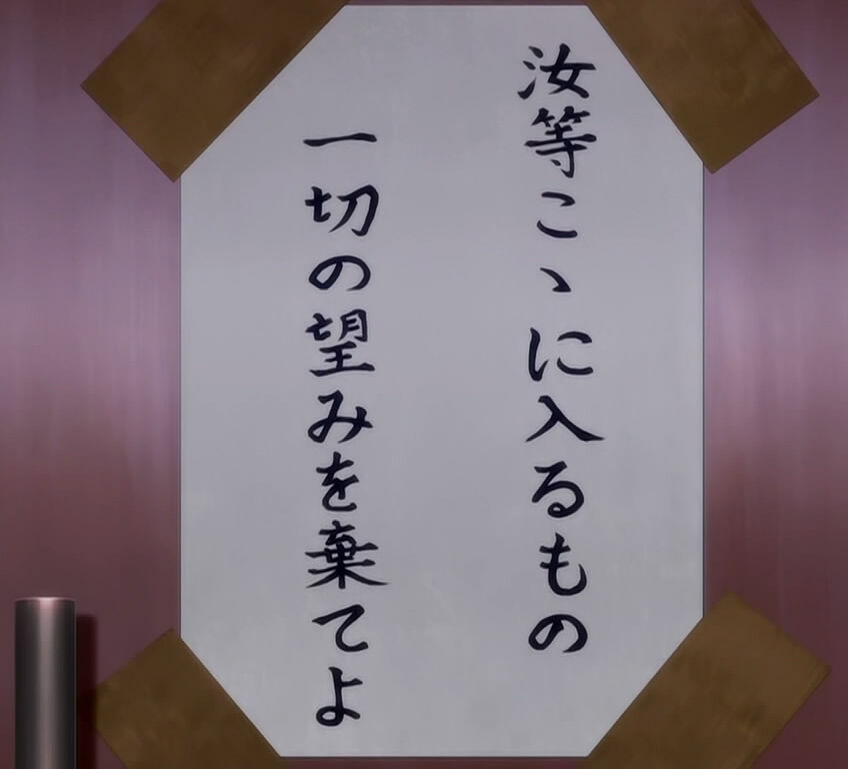 汝等こゝに入るもの
一切の望みを棄てよ